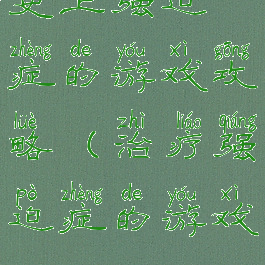 史上强迫
zhèng de yóu xì gōng
症的游戏攻
lüè zhì liáo qiáng
略（治疗强
pò zhèng de yóu xì
迫症的游戏